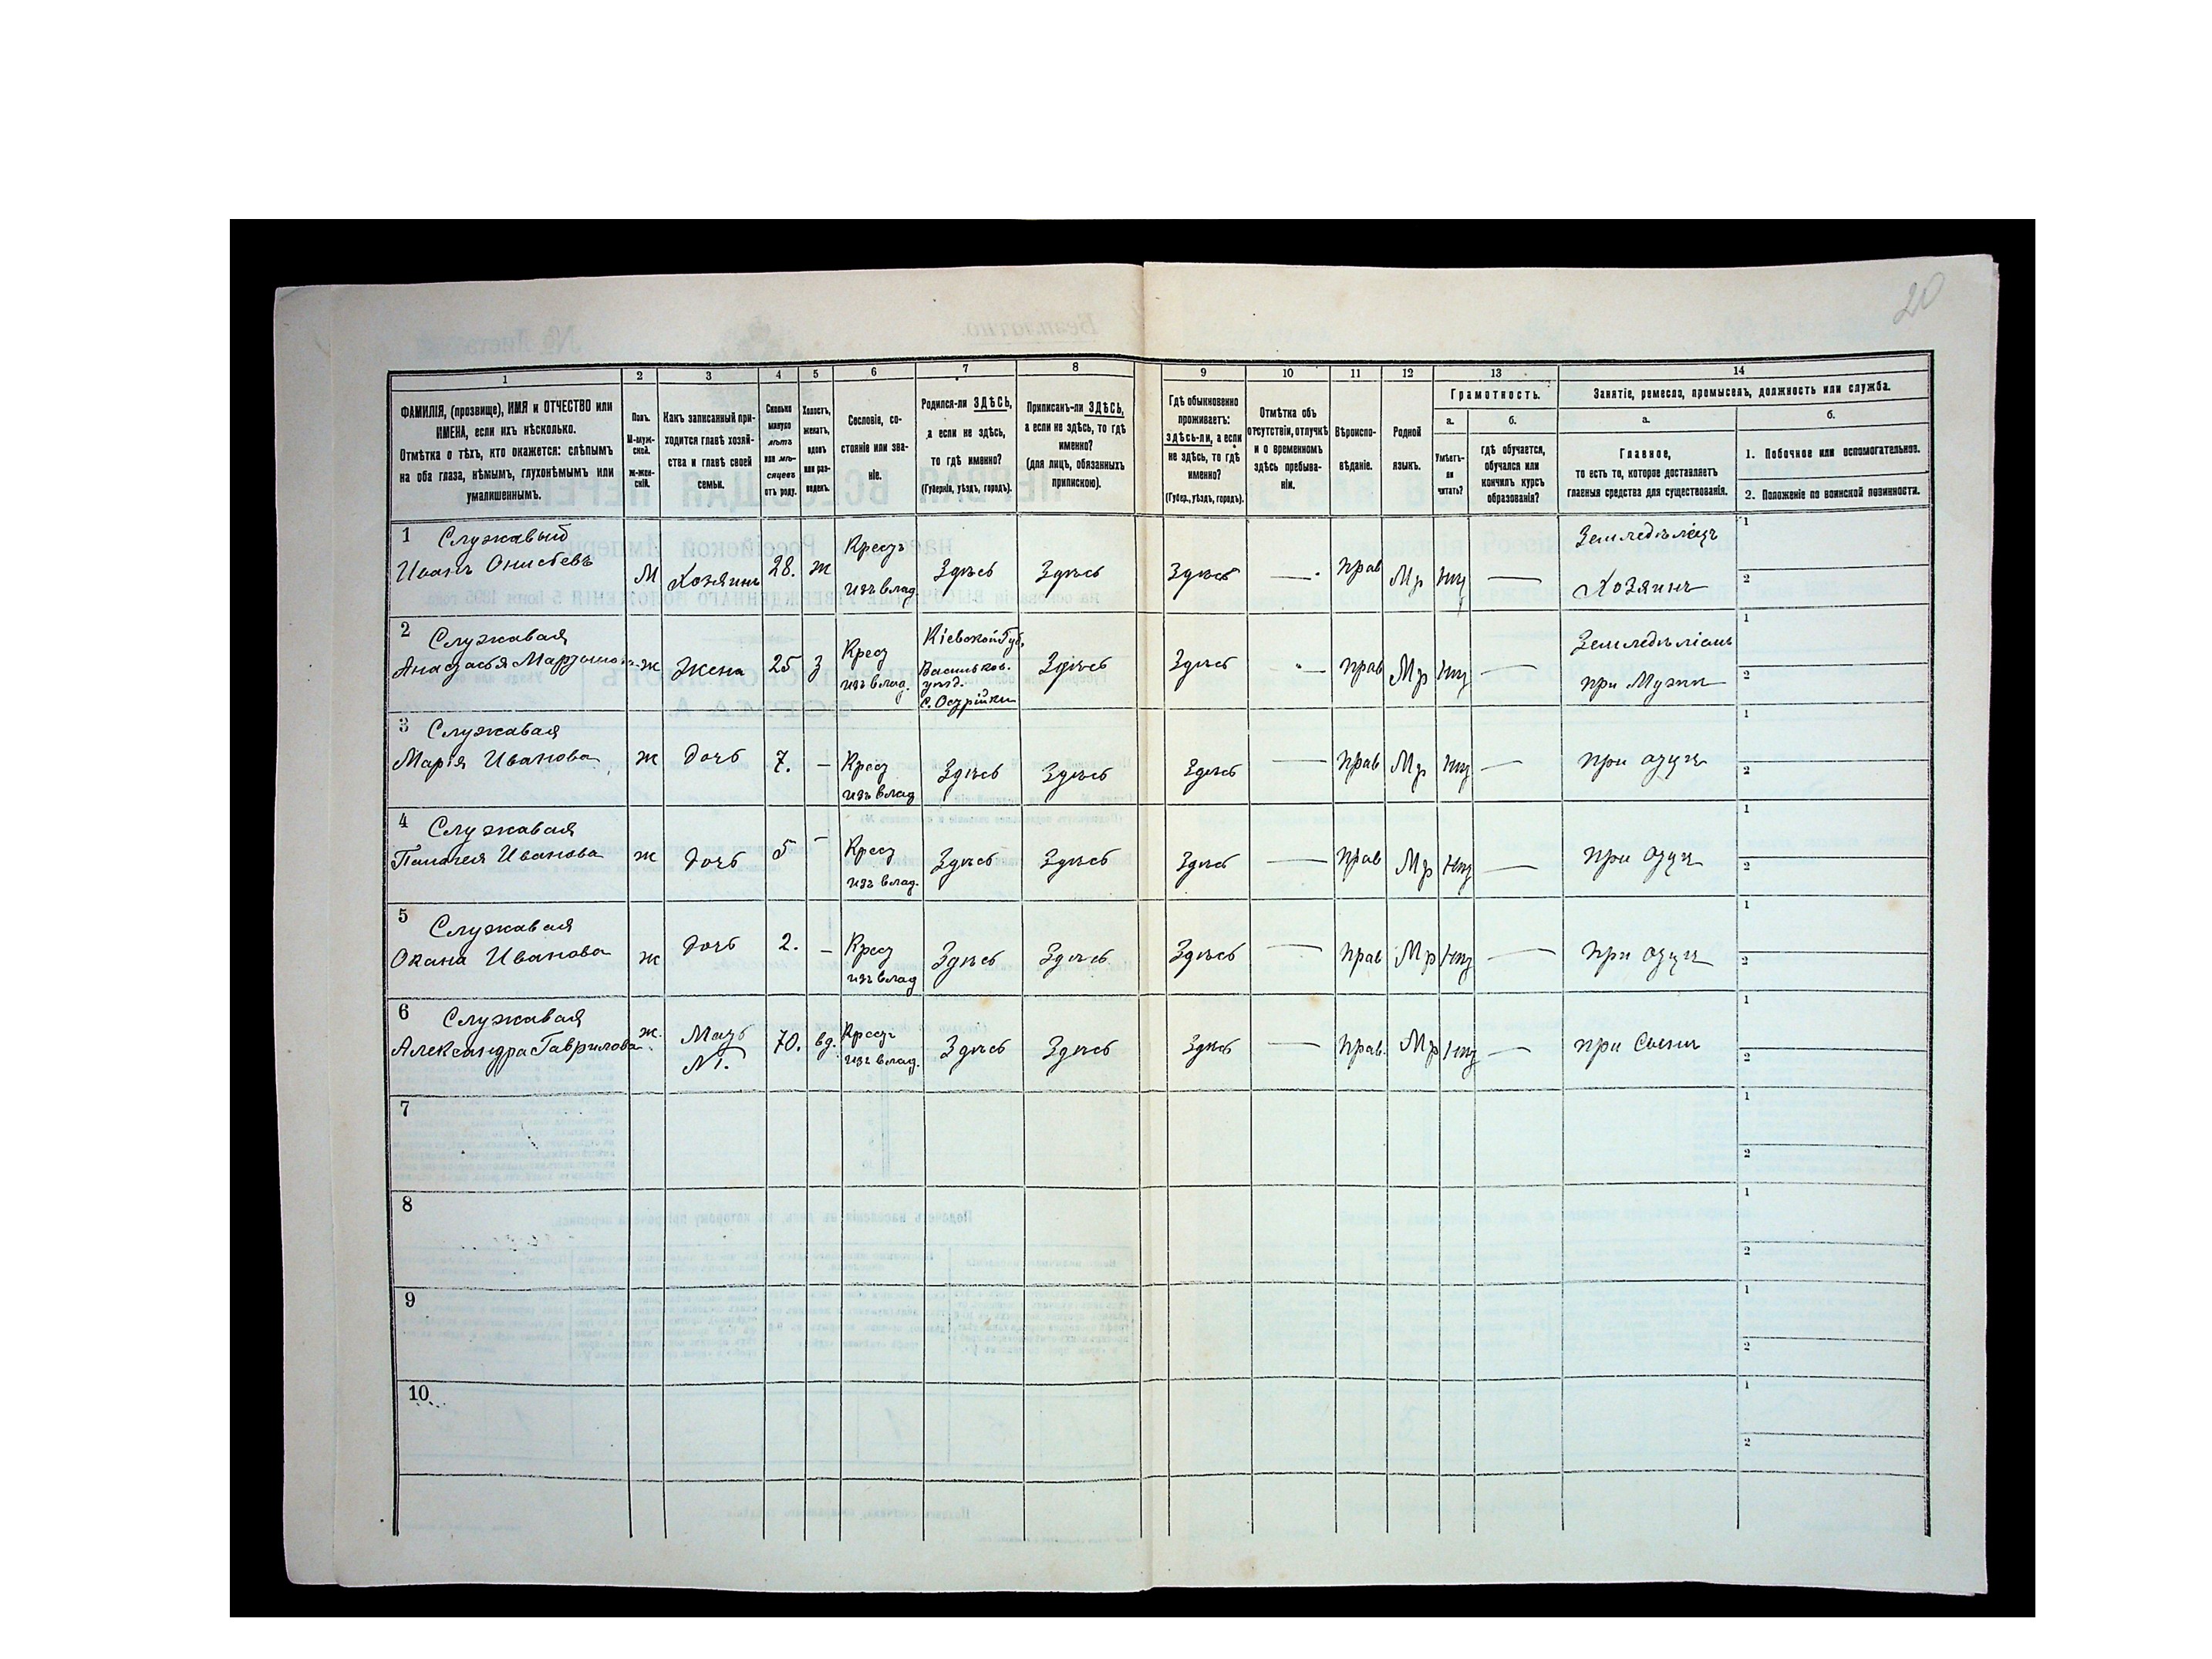 20
1 2 3 4 5 6 7 8 9 10 11 12 13 14
ФАМИЛІЯ, (прозвище), ИМЯ и ОТЧЕСТВО или
ИМЕНА, если ихъ нѣсколько.
Отмѣтка о тѣхъ, кто окажется: слѣпымъ
на оба глаза, нѣмымъ, глухонѣмымъ или
умалишеннымъ.
Полъ.
М-муж-
ской.
ж-жен-
скій.
Какъ записанный при-
ходится главѣ хозяй-
ства и главѣ своей
семьи.
Сколько
минуло
лѣтъ
или мѣ-
сяцевъ
отъ роду.
Холостъ,
женатъ,
вдовъ
или раз-
веденъ.
Сословіе, со-
стояніе или зва-
ніе.
Родился-ли ЗДѢСЬ,
а если не здѣсь,
то гдѣ именно?
(Губернія, уѣздъ, городъ).
Приписанъ-ли ЗДѢСЬ,
а если не здѣсь, то гдѣ
именно?
(для лицъ, обязанныхъ
припискою).
Гдѣ обыкновенно
проживаетъ:
здѣсь-ли, а если
не здѣсь, то гдѣ
именно?
(Губер., уѣздъ, городъ).
Отмѣтка объ
отсутствіи, отлучкѣ
и о временномъ
здѣсь пребыва-
ніи.
Вѣроиспо-
вѣданіе.
Родной
языкъ.
Грамотность.
а.
Умѣетъ-
ли
читать?
б.
гдѣ обучается,
обучался или
кончилъ курсъ
образованія?
Занятіе, ремесло, промыселъ, должность или служба.
а.
Главное,
то есть то, которое доставляетъ
главныя средства для существованія.
б.
1. Побочное или вспомогательное.
2. Положеніе по воинской повинности.
1 Служавый Крест Земледѣлецъ 1
Иванъ Онисъевъ М Хозяинъ 28. ж изъ влад. Здѣсь Здѣсь Здѣсь — прав Мр нѣт — Хозяинъ 2
2 Служавая Крест Кіевской Губ. Земледѣліемъ 1
Анастасья Мартинова ж Жена 25 з изъ влад. Васильков. Здѣсь Здѣсь — прав Мр нѣт — при Мужи 2
уѣзд.
с. Острійки
3 Служавая 1
Марія Иванова ж дочь 7. – Крест Здѣсь Здѣсь Здѣсь — прав Мр нѣт — при отцѣ 2
изъ влад
4 Служавая 1
Пелагея Иванова ж дочь 5 – Крест Здѣсь Здѣсь Здѣсь — прав Мр нѣт — при отцѣ 2
изъ влад.
5 Служавая 1
Оксана Иванова ж дочь 2. – Крест Здѣсь Здѣсь Здѣсь — прав Мр нѣт — при отцѣ 2
изъ влад
6 Служавая 1
Александра Гаврилова ж. Мать 70. вд. Крест Здѣсь Здѣсь Здѣсь — прав. Мр нѣт — при Сынѣ 2
№ 1. изъ влад.
7 1
2
8 1
2
9 1
2
10 1
2